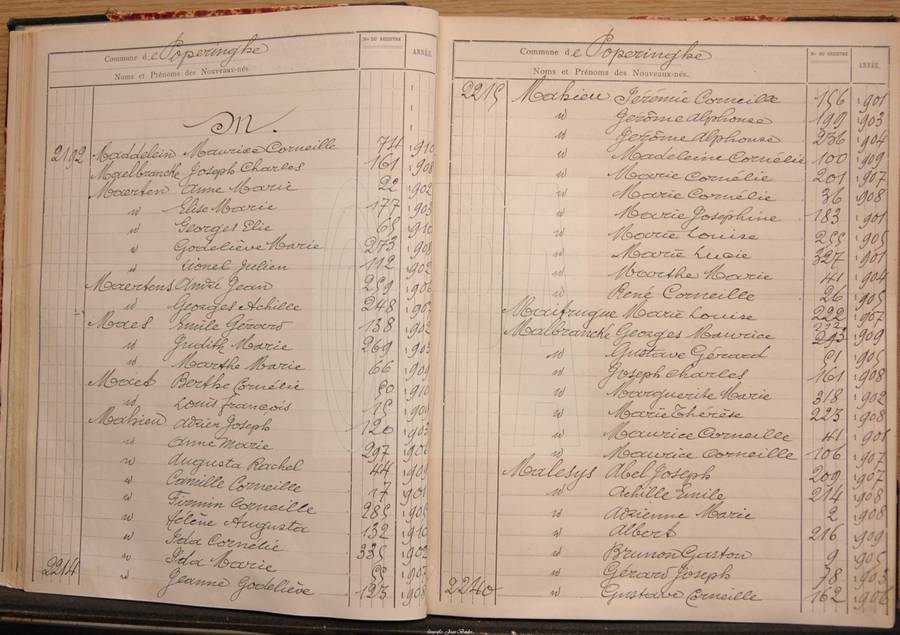 Commune de Poperinghe
Nos DU REGISTRE
ANNÉE.
Noms et Prénoms des Nouveaux-nés.
M.
2192 Maddelein Maurice Corneille 74 1910
Maelbranche Joseph Charles 161 1908
Maerten Anne Marie 22 1902
id Elise Marie 177 1903
id Georges Elie 65 1910
id Godeliève Marie 273 1908
id Lionel Julien 112 1902
Maertens André Jean 259 1906
id Georges Achille 248 190
Maes Emile Gérard 138 1902
id Judith Marie 269 1903
id Marthe Marie 66 1909
Maet Berthe Cornélie 50 1910
id Louis François 15 190
Mahieu Joseph 120 1903
id Anne Marie 297 190
id Augusta Rachel 44 190
id Camille Corneille 17 1901
id Firmin Corneille 285 190
id Hélène Augusta 132 1910
id Ida Cornélie 335 1902
id Ida Marie 55 190
2214 id Jeanne Godeliève 123 1908
Commune de Poperinghe
No DU REGISTRE
ANNÉE.
Noms et Prénoms des Nouveaux-nés.
2215 Mahieu Jérémie Corneille 156 1901
id Gérôme Alphonse 199 1903
id Jerôme Alphonse 236 1904
id Madeleine Cornélie 100 1909
id Marie Cornélie 201 1907
id Marie Cornélie 36 1908
id Marie Joséphine 183 1901
id Marie Louise 255 1905
id Marie Lucie 327 1901
id Marthe Marie 41 1904
id René Corneille 26 1905
Maifrugue Marie Louise 222 1907
Malbranche Georges Maurice 293 1909
id Gustave Gérard 51 1905
id Joseph Charles 161 1908
id Marguerite Marie 318 1902
id Marie Thérèse 223 1908
id Maurice Corneille 41 1901
id Maurice Corneille 106 1907
Malesys Abel Joseph 209 1907
id Achille Emile 214 1908
id Adrienne Marie 2 1908
id Albert 216 1909
id Brunon Gaston 9 1905
id Gérard Joseph 78 1903
2240 id Gustave Corneille 162 1906